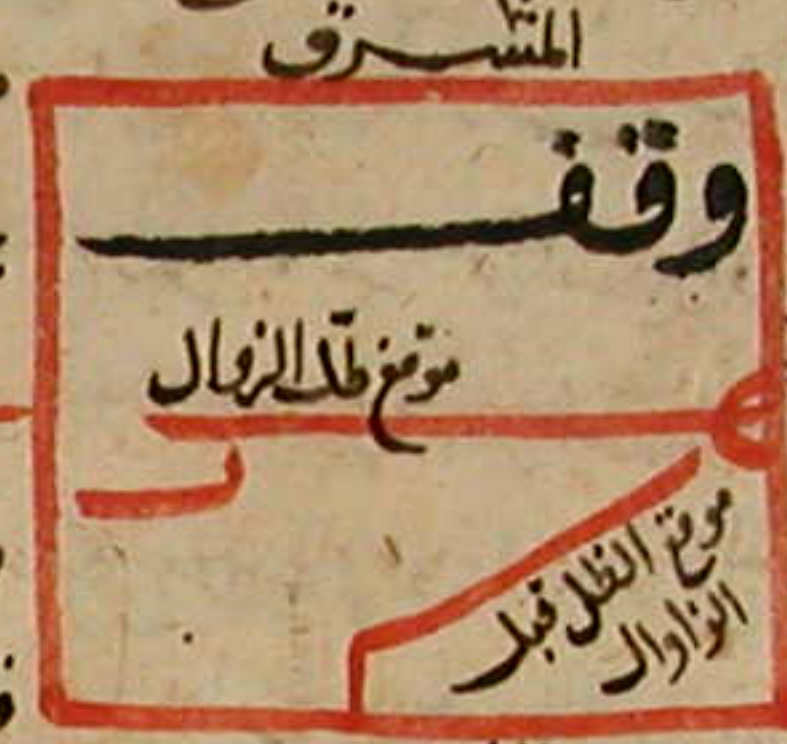 المشرق
وقف
موقع ظل الزوال
موقع الظل قبل
الزاوال